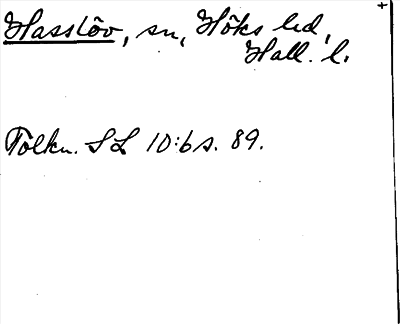 Hasslöv, sn, Höks hd,
Hall. l.
Tolkn. SL 10:6 s. 89.